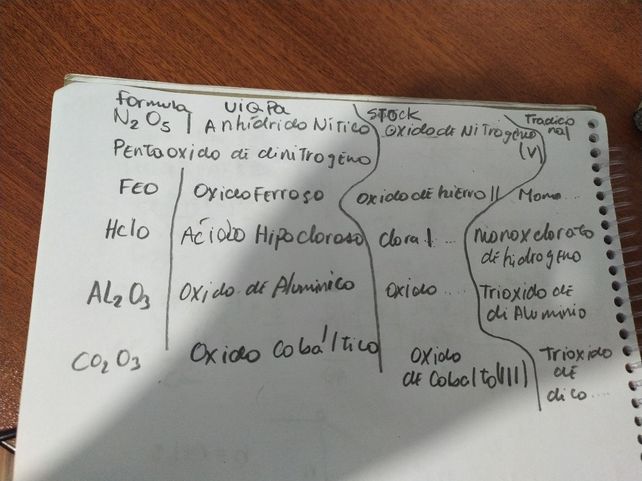 Formula UiQPa STOCK Tradicional
N2O5 Anhídrido Nitico Oxido de Nitrogeno (V)
Pentaoxido de dinitrogeno
FeO Oxido Ferroso Oxido de hierro II Mono ...
HclO Ácido Hipocloroso clora I ... monoxclorato de hidrogeno
Al2O3 Oxido de Aluminico Oxido .... Trioxido de di Aluminio
CO2O3 Oxido Cobáltico Oxido de Cobalto (III) Trioxido de dico ....